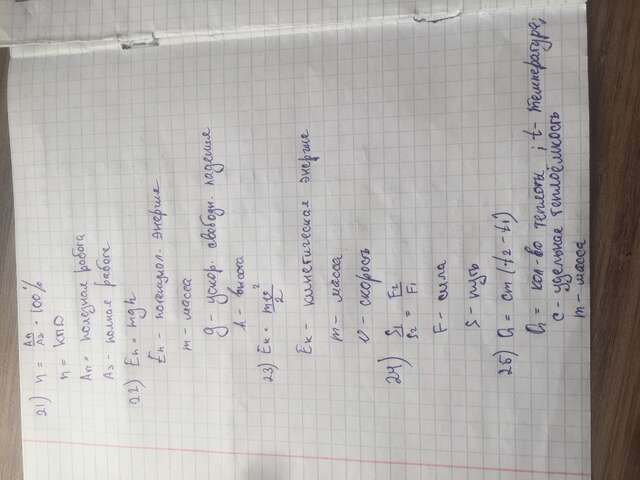 21) η = Aп/Aз · 100%
η = КПД
Aп = полезная работа
Aз - полная работа
22) Eп = mgh
Eп - потенциал. энергия
m - масса
g - ускор. свободн. падения
h - высота
23) Eк = mv²/2
Eк - кинетическая энергия
m - масса
v - скорость
24) S1/S2 = F2/F1
F - сила
S - путь
25) Q = cm (t2 - t1)
Q = кол-во теплоты ; t - температура;
c - удельная теплоёмкость
m - масса